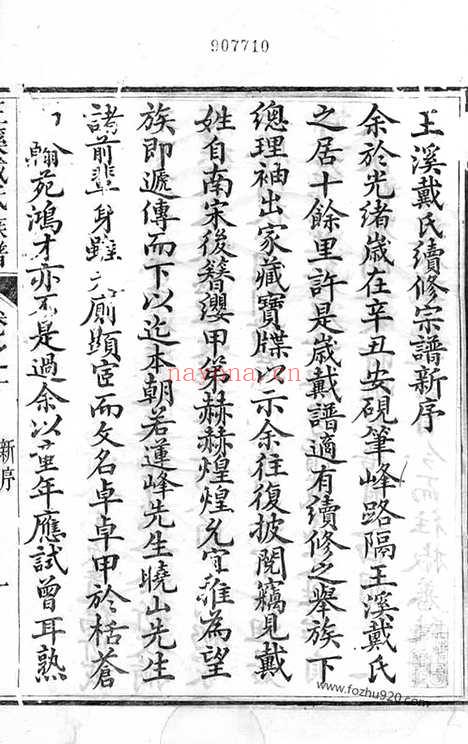 907710
王溪戴氏續修宗譜新序
余於光緒歲在辛丑安硯筆峰路隔王溪戴氏
之居十餘里許是歲戴譜適有續修之舉族下
總理袖出家藏寶牒以示余往復披閱竊見戴
姓自南宋後簪纓甲第赫赫煌煌允宜推為望
族即遞傳而下以迄本朝若蓮峰先生曉山先生
諸前輩身雖 廟顯宦而文名卓卓甲於栝蒼
翰苑鴻才亦不是過余以童年應試曾耳熟
王溪戴氏族譜
新序
一
navona.cn
www.fozhu920.com